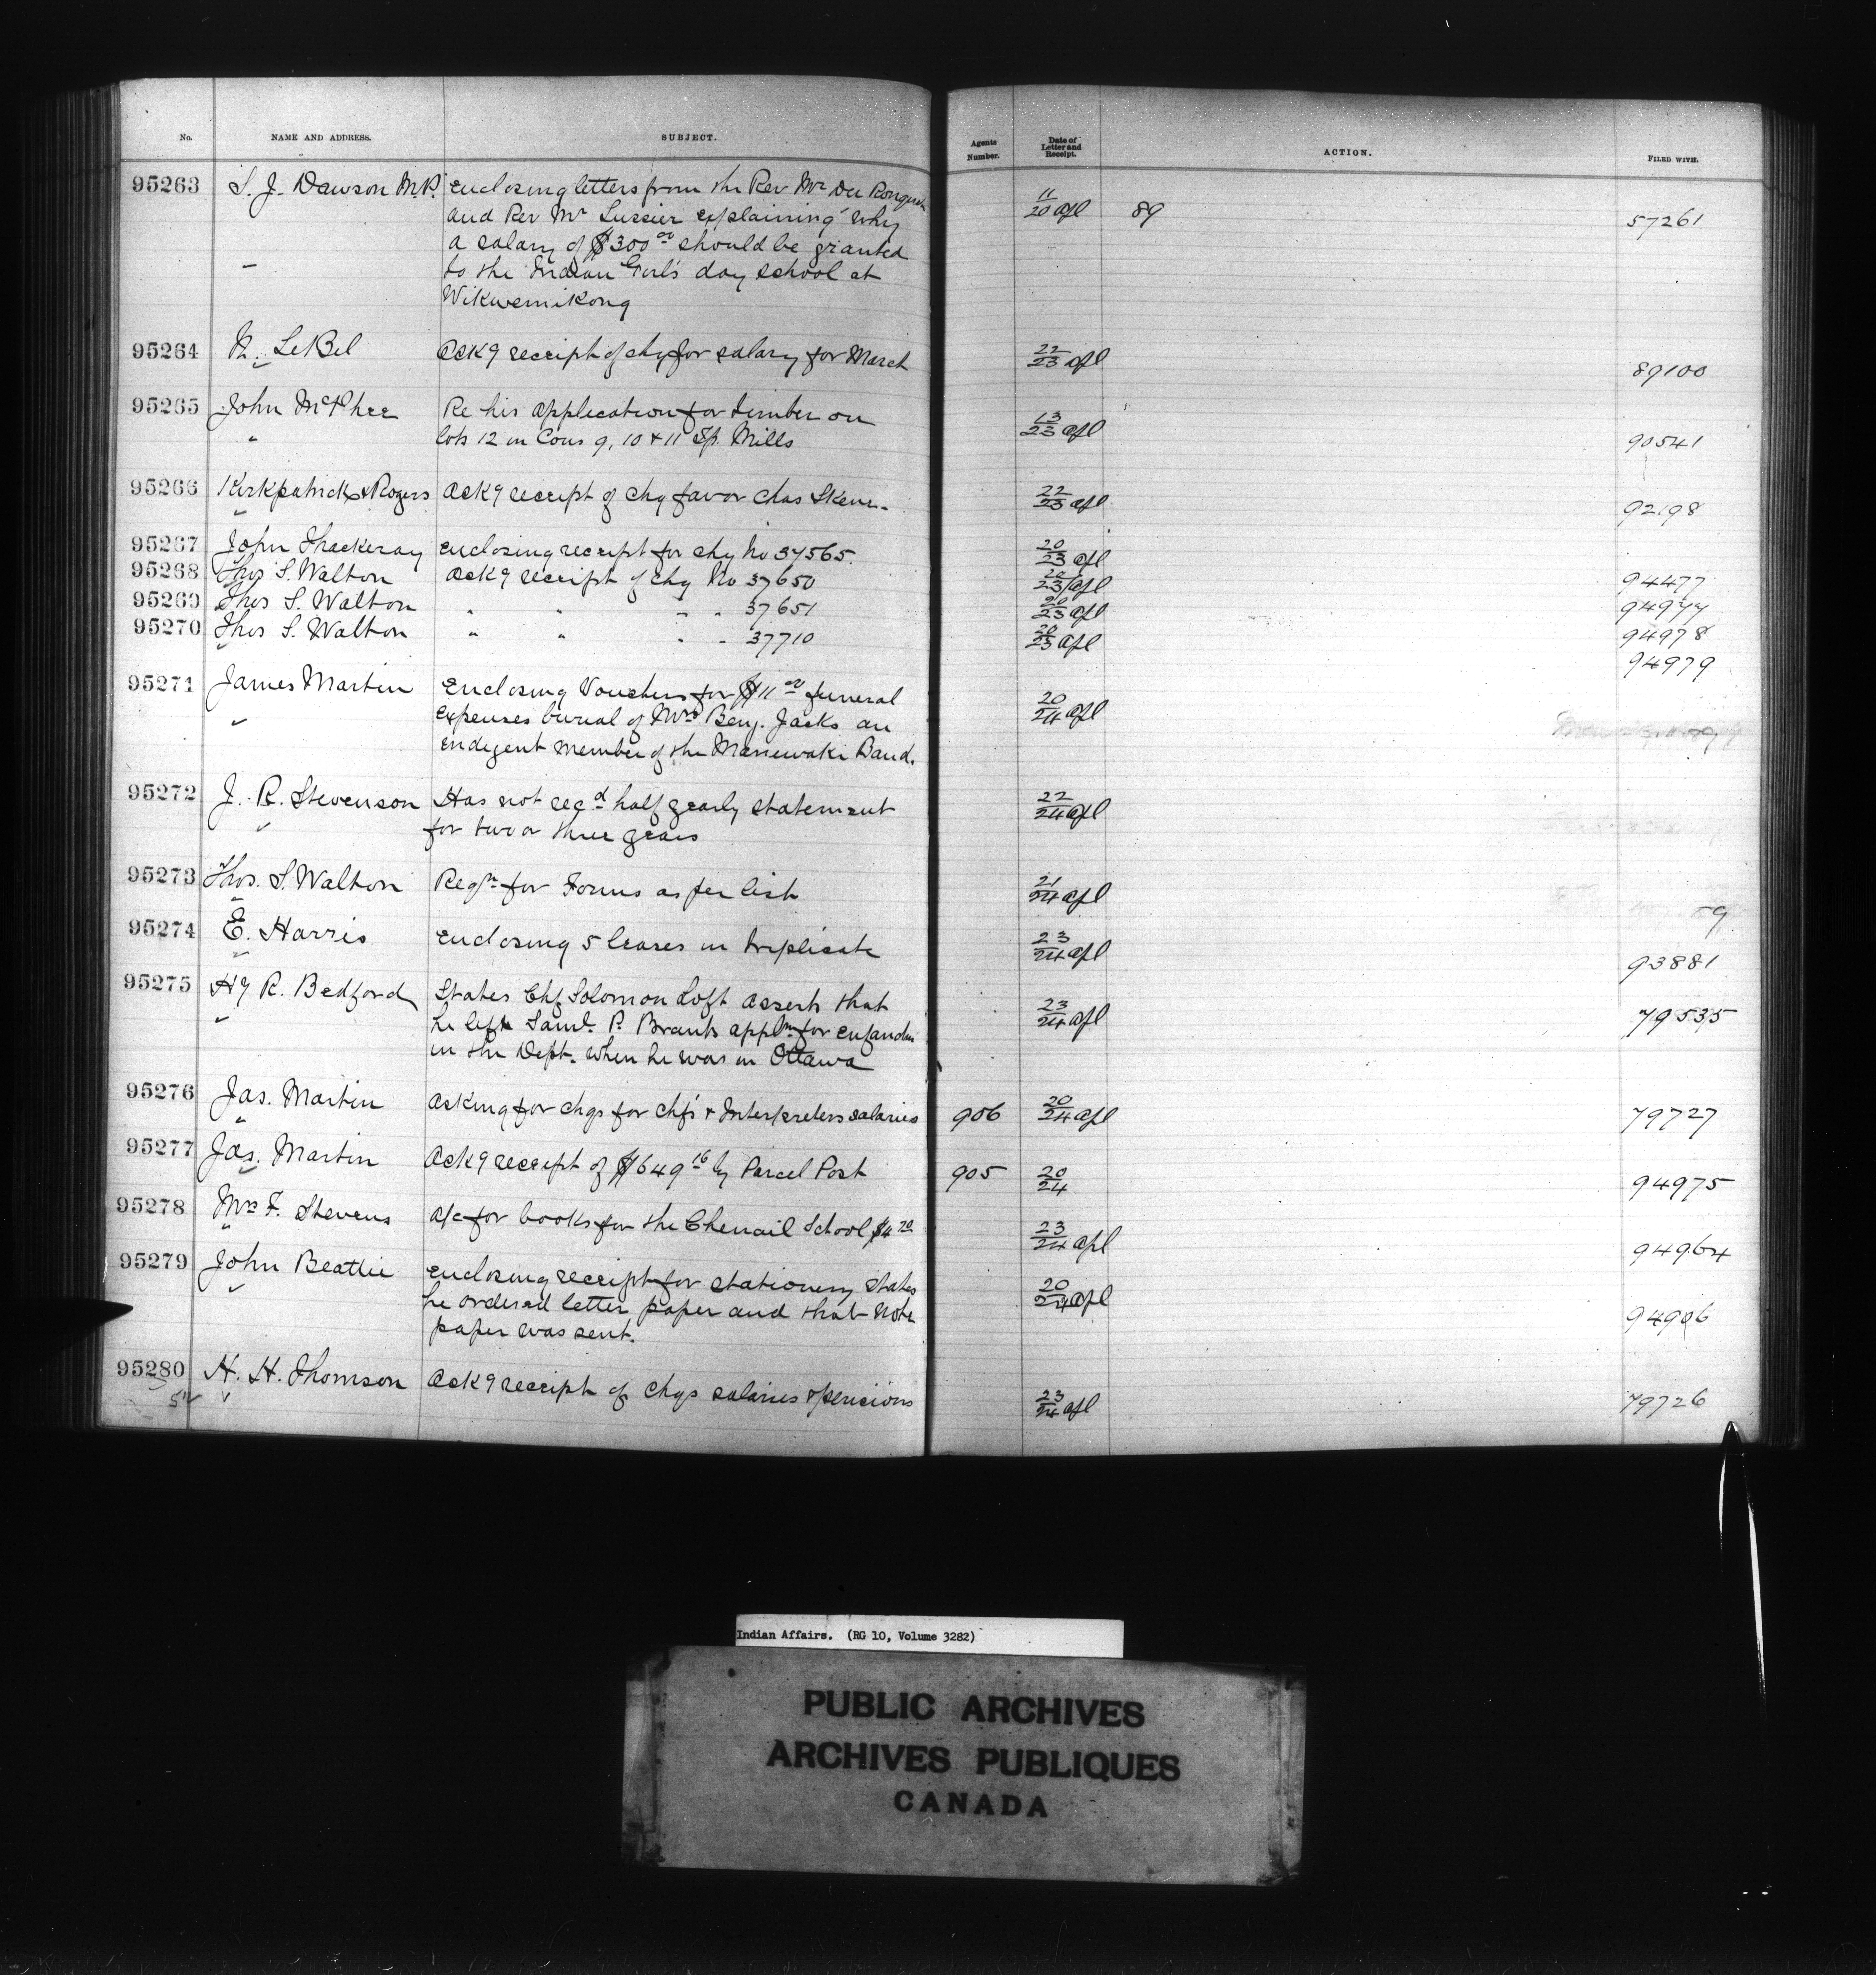 No. NAME AND ADDRESS. SUBJECT. Agents Number. Date of Letter and Receipt. ACTION. FILED WITH.
95263 S. J. Dawson M.P. Enclosing letters from the Rev Mr Du Ronquet 11/20 apl 89 57261
and Rev Mr Lussier explaining why
a salary of $300 00 should be granted
to the Indian Girl's day school at
Wikwemikong
95264 N. LeBel Ackg receipt of chq for salary for March 22/23 apl 89100
95265 John McPhee Re his application for timber on 13/23 apl 90541
" lots 12 in Cons 9, 10 & 11 Tp. Mills
95266 Kirkpatrick & Rogers Ackg receipt of chq favor Chas Skene. 22/23 apl 92198
95267 John Thackeray Enclosing receipt for chq No 37565. 20/23 apl 94477
95268 Thos S. Walton Ackg receipt of chq No 37650 20/23 apl 94977
95269 Thos S. Walton " " " " 37651 20/23 apl 94978
95270 Thos S. Walton " " " " 37710 20/23 apl 94979
95271 James Martin Enclosing Vouchers for $11 00 funeral 20/24 apl
expenses burial of Mrs Benj. Jacks an
indigent member of the Maniwaki Band.
95272 J. R. Stevenson Has not recd half yearly statement 22/24 apl
for two or three years
95273 Thos. S. Walton Reqn for Forms as per list 21/24 apl
95274 E. Harris Enclosing 5 leases in triplicate 23/24 apl 93881
95275 Hy R. Bedford States Chf Solomon Loft asserts that 23/24 apl 79535
he left Saml. P. Brants appln for enfanchn
in the Dept. when he was in Ottawa
95276 Jas. Martin Asking for chqs for Chfs & Interpreters salaries 906 20/24 apl 79727
95277 Jas. Martin Ackg receipt of $649 16 by Parcel Post 905 20/24 94975
95278 Mrs F. Stevens a/c for books for the Chenail School $4 20 23/24 apl 94964
95279 John Beattie Enclosing receipt for stationery States 20/24 apl 94906
he ordered letter paper and that note
paper was sent.
95280 H. H. Thomson Ackg receipt of chqs salaries & pensions 23/24 apl 79726
Indian Affairs. (RG 10, Volume 3282)
PUBLIC ARCHIVES
ARCHIVES PUBLIQUES
CANADA